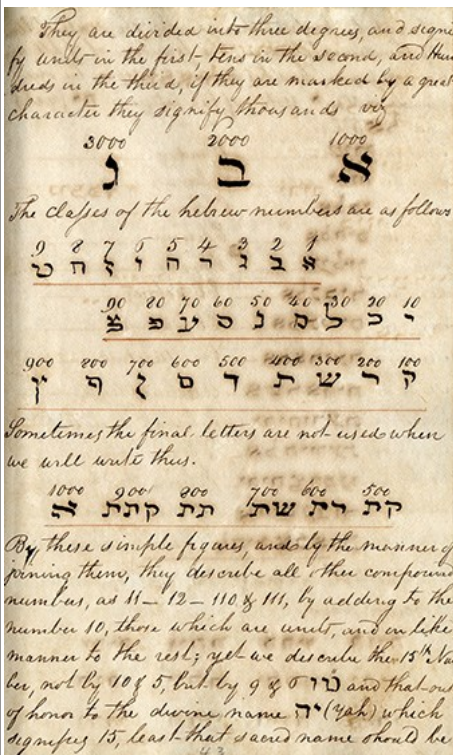 They are divided into three degrees, and signi
fy units in the first, tens in the second, and Hun
dreds in the third, if they are marked by a great
character they signify thousands viz
3000 2000 1000
א ב ג
The classes of the hebrew numbers are as follows
9 8 7 6 5 4 3 2 1
א ב ג ד ה ו ז ח ט
90 80 70 60 50 40 30 20 10
י כ ל מ נ ס ע פ צ
900 800 700 600 500 400 300 200 100
ק ר ש ת ך ם ן ף ץ
Sometimes the final letters are not used when
we will write thus.
1000 900 800 700 600 500
תק תר תש תת תתק א
By these simple figures, and by the manner of
joining them, they describe all other compound
numbus, as 11 – 12 – 110 & 111, by adding to the
number 10, those which are units, and in like
manner to the rest; yet we describe the 15th Nu
ber, not by 10 & 5, but by 9 & 6 טו and that out
of honor to the divine name יה (Yah) which
signifies 15, least that sacred name should be